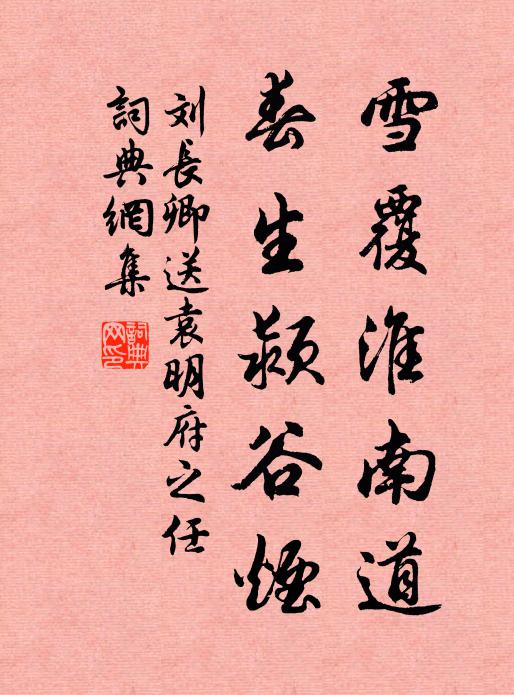 雪覆淮南道
春生颍谷煙
刘長卿送袁明府之任
詞典網集
詞典網印